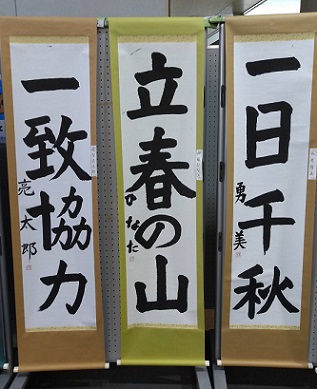 一日千秋
勇美
立春の山
ひなた
一致協力
亮太郎